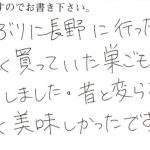 すのでお書き下さい。
ぶりに長野に行った
く買っていた巣ごも
しました。昔と変ら
く美味しかったです